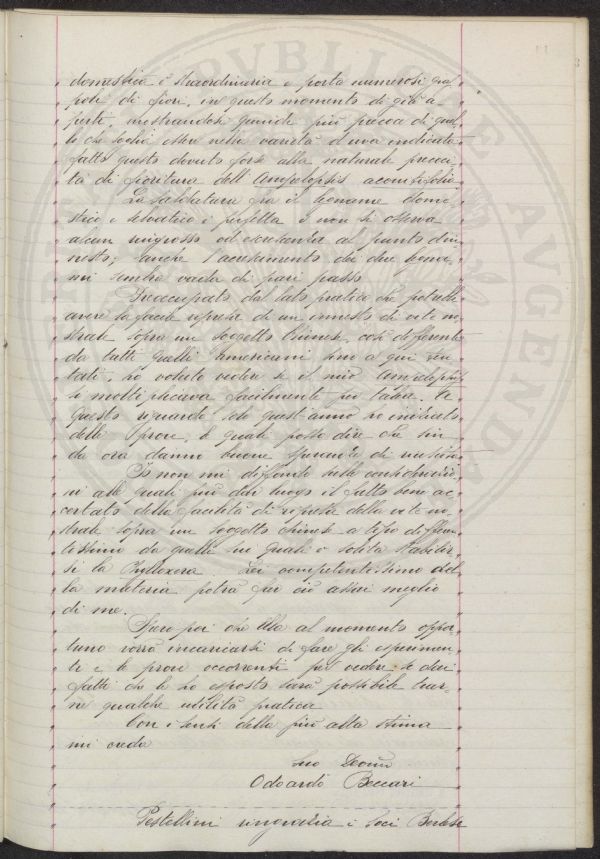 domestica è straordinaria e porta numerosi grap
poli di fiori, in questo momento di già a
perti, mostrandosi quindi più precoce di quel
lo che soglia essere nella varietà d'uva indicata
fatto questo dovuto forse alla naturale precoci
tà di fioritura dell'Ampelopsis aconitifolia.
La saldatura fra il legname dome
stico e selvatico è perfetta e non si osserva
alcun ringrosso od escrescenza al punto d'in
nesto; anche l'accrescimento dei due legna
mi sembra vada di pari passo
Preoccupato dal lato pratico che potrebbe
avere la facile ripresa di un innesto di vite no
strale sopra un soggetto Chinese, così differente
da tutti quelli Americani sino a qui ten
tati, ho voluto vedere se il mio Ampelopsis
si moltiplicava facilmente per talea. A
questo riguardo solo quest'anno ho iniziato
delle prove, le quali posso dire che sin
da ora danno buone speranze di riuscita
Io non mi diffondo sulle considerazio
ni alle quali può dar luogo il fatto bene ac
certato della facilità di ripresa della vite no
strale sopra un soggetto chinese a tipo differen
tissimo da quelli sui quali è solita stabilir
si la Phylloxera. Lei competentissimo del
la materia potrà far ciò assai meglio
di me.
Spero poi che Ella al momento oppor
tuno vorrà incaricarsi di fare gli esperimen
ti e le prove occorrenti per vedere se dai
fatti che le ho esposto sarà possibile trar
ne qualche utilità pratica
Con i sensi della più alta stima
mi creda
Suo Devmo
Odoardo Beccari
Pestellini ringrazia i Soci Berlese
PUBLICAE
AUGENDA